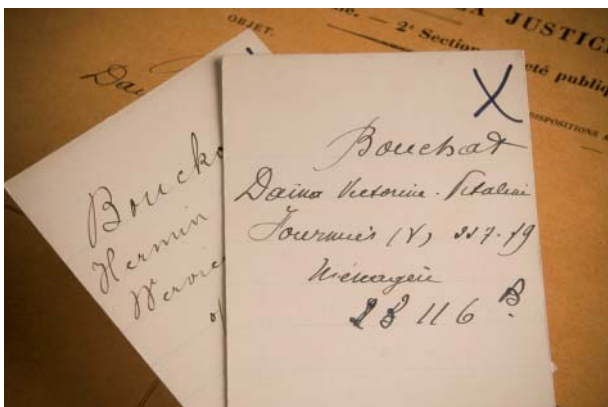 OBJET.
LA JUSTIC
2e Section
eté publiq
DISPOSITIONS
Dau
Bouck
Hermin
Wervic
X
Bouchat
Daina Victorine. Vitaline
Fourmies (V), 7.79
Ménagère
116 B.